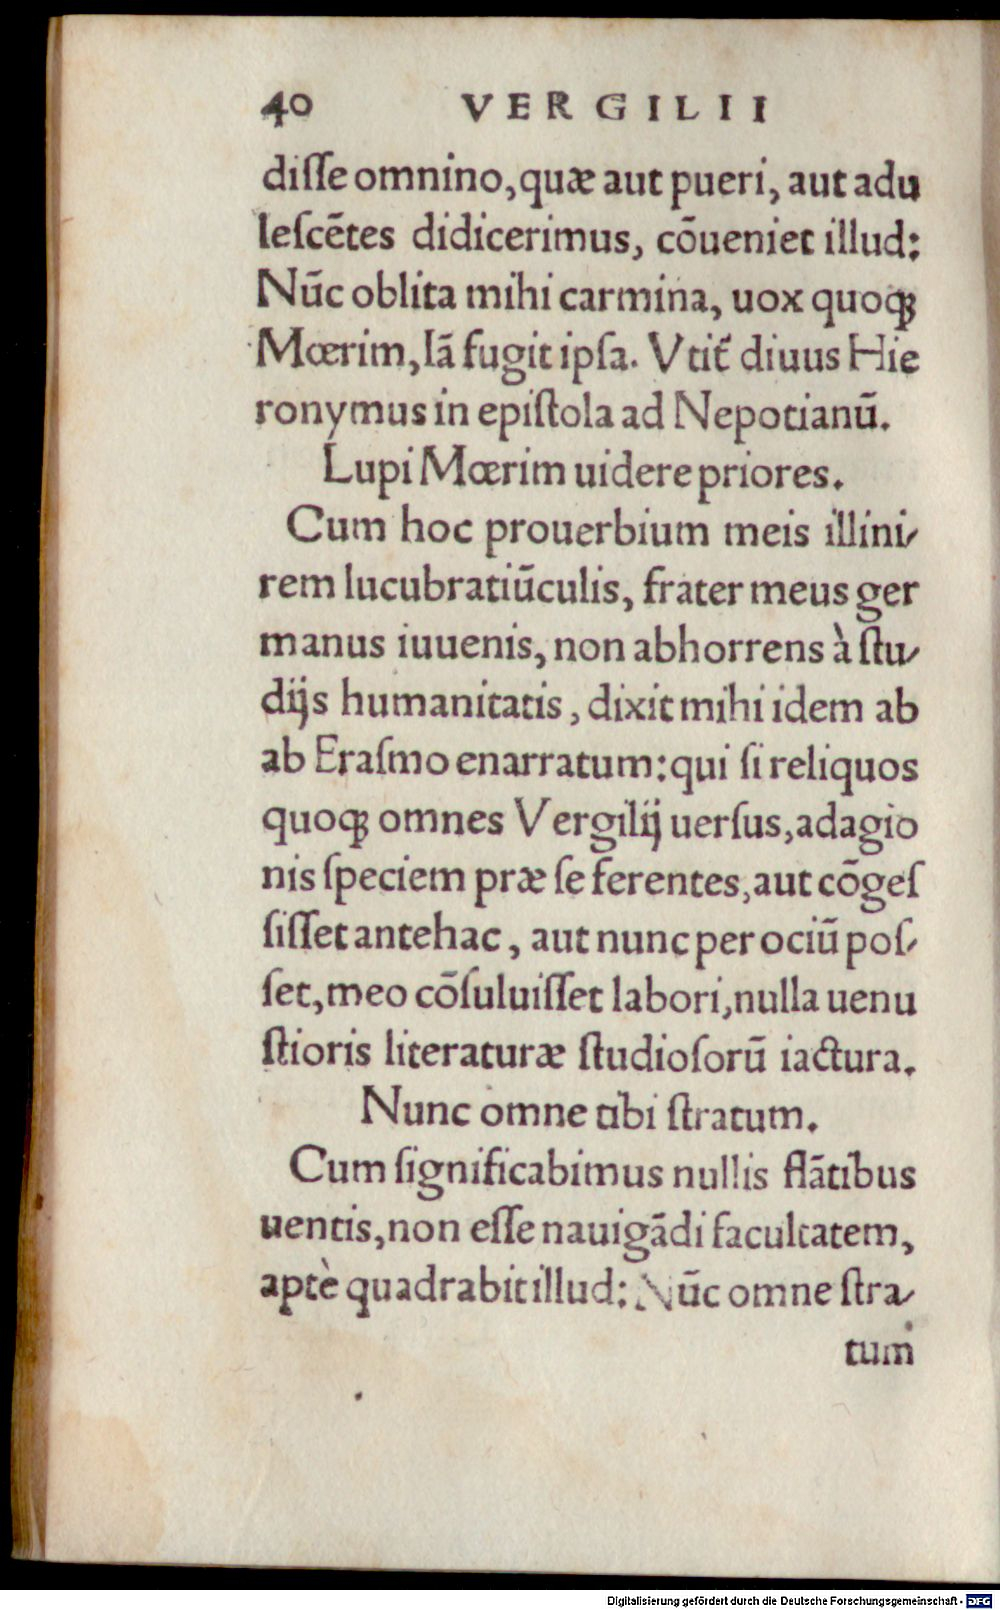 40 VERGILII
diſſe omnino, quæ aut pueri, aut adu
leſcētes didicerimus, cōueniet illud:
Nūc oblita mihi carmina, uox quoqꝫ
Mœrim, Iā fugit ipſa. Vtit᷑ diuus Hie
ronymus in epiſtola ad Nepotianū.
Lupi Mœrim uidere priores.
Cum hoc prouerbium meis illini/
rem lucubratiūculis, frater meus ger
manus iuuenis, non abhorrens à ſtu/
dijs humanitatis, dixit mihi idem ab
ab Eraſmo enarratum: qui ſi reliquos
quoqꝫ omnes Vergilij uerſus, adagio
nis ſpeciem præ ſe ferentes, aut cōgeſ
ſiſſet antehac, aut nunc per ociū poſ/
ſet, meo cōſuluiſſet labori, nulla uenu
ſtioris literaturæ ſtudioſorū iactura.
Nunc omne tibi ſtratum.
Cum ſignificabimus nullis flātibus
uentis, non eſſe nauigādi facultatem,
aptè quadrabit illud: Nūc omne ſtra/
tum
Digitalisierung gefördert durch die Deutsche Forschungsgemeinschaft - DFG